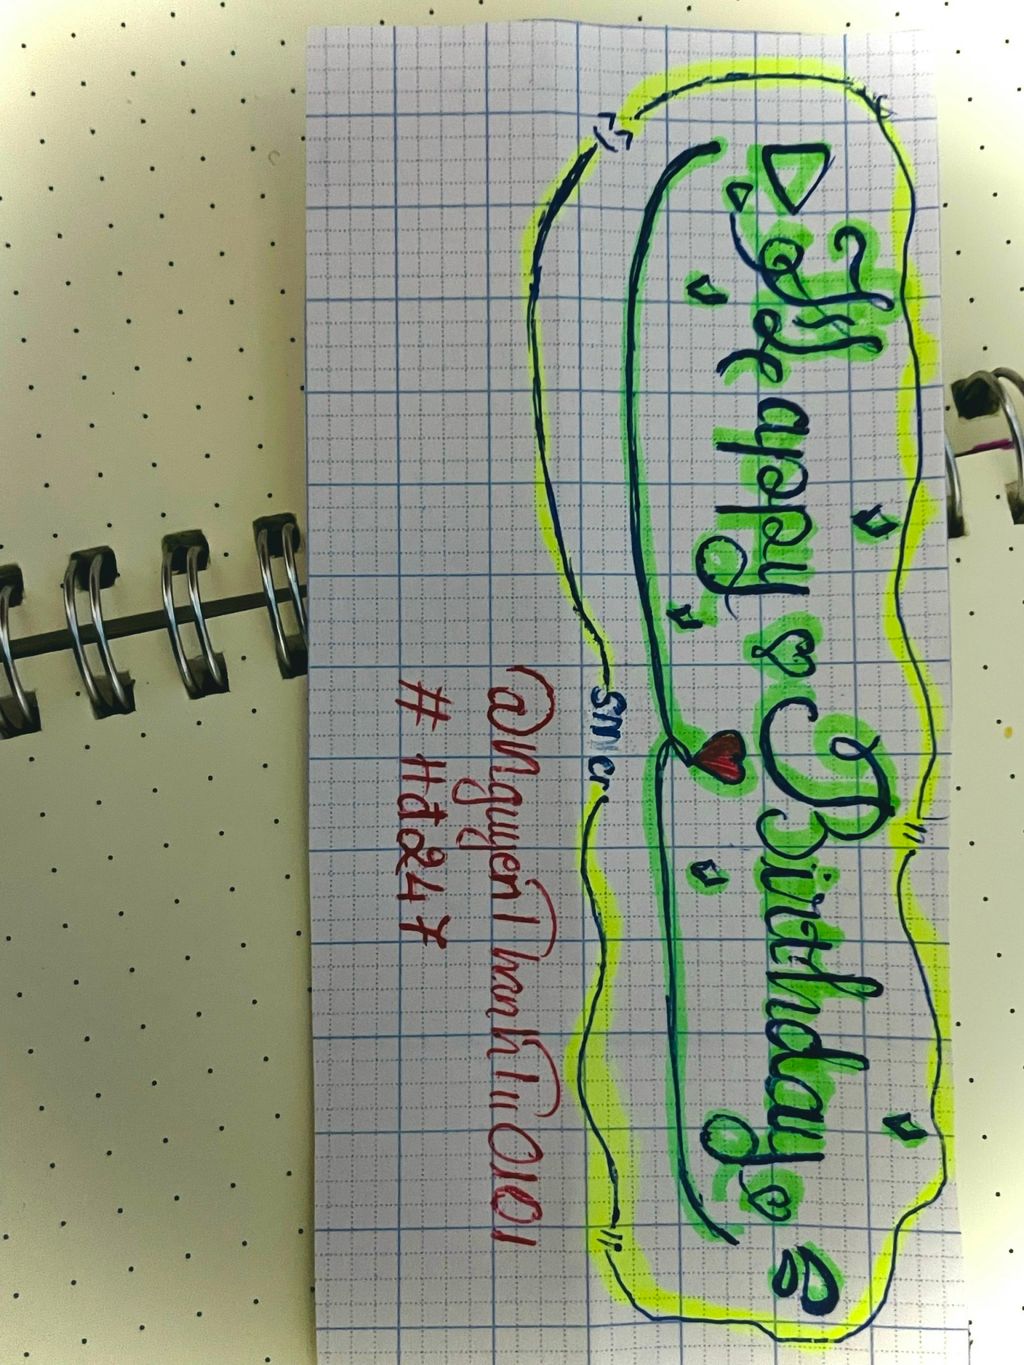 Happy Birthday
smcr
@NguyenThanhTu0101
#Hd247